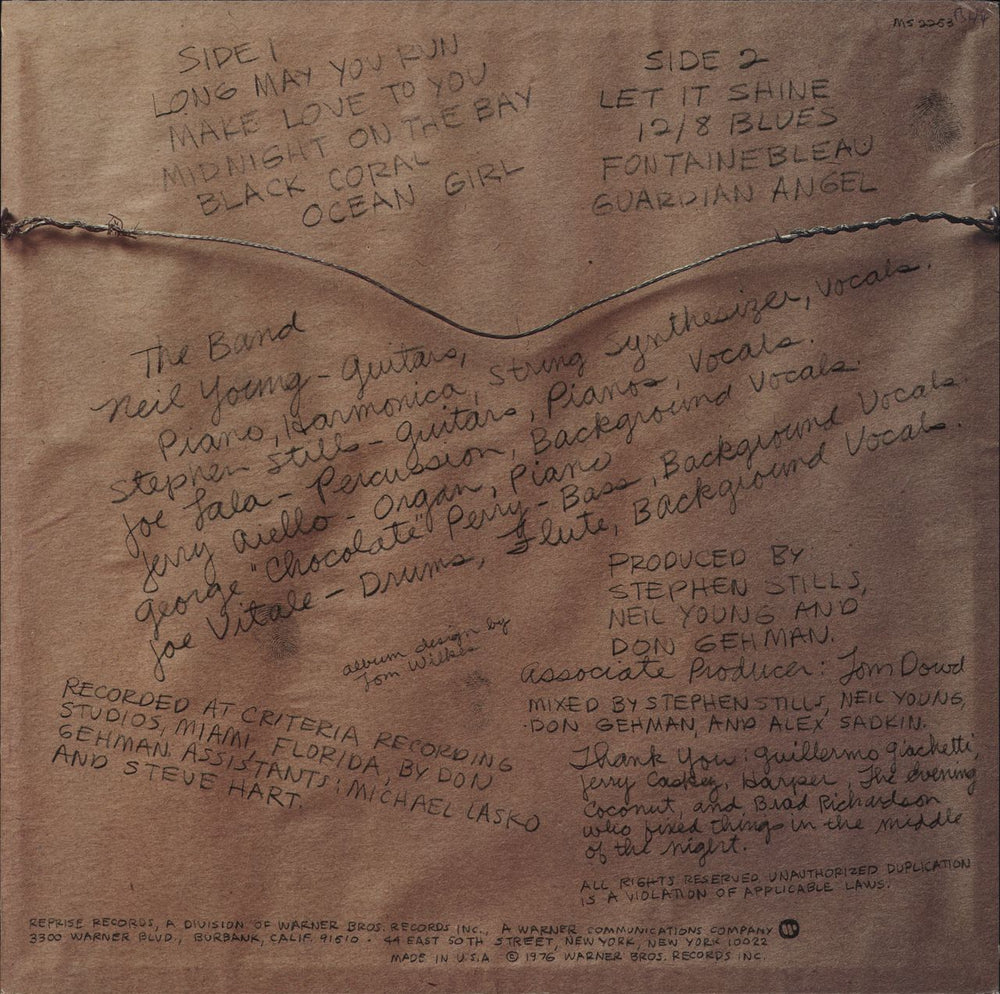 MS 2253
SIDE 1
LONG MAY YOU RUN
MAKE LOVE TO YOU
MIDNIGHT ON THE BAY
BLACK CORAL
OCEAN GIRL
SIDE 2
LET IT SHINE
12/8 BLUES
FONTAINEBLEAU
GUARDIAN ANGEL
The Band
Neil Young - Guitars,
Piano, Harmonica, String Synthesizer, Vocals.
Stephen Stills - Guitars, Pianos, Vocals.
Joe Lala - Percussion, Background Vocals.
Jerry Aiello - Organ, Piano
George "Chocolate" Perry - Bass, Background Vocals.
Joe Vitale - Drums, Flute, Background Vocals.
album design by
Tom Wilkes
RECORDED AT CRITERIA RECORDING
STUDIOS, MIAMI, FLORIDA, BY DON
GEHMAN. ASSISTANTS: MICHAEL LASKO
AND STEVE HART.
PRODUCED BY
STEPHEN STILLS,
NEIL YOUNG AND
DON GEHMAN.
Associate Producer: Tom Dowd
MIXED BY STEPHEN STILLS, NEIL YOUNG,
DON GEHMAN, AND ALEX SADKIN.
Thank You: Guillermo Giachetti,
Jerry Caskey, Harper, The evening
Coconut, and Brad Richardson
who fixed things in the middle
of the night.
ALL RIGHTS RESERVED UNAUTHORIZED DUPLICATION
IS A VIOLATION OF APPLICABLE LAWS.
REPRISE RECORDS, A DIVISION OF WARNER BROS. RECORDS INC., A WARNER COMMUNICATIONS COMPANY
3300 WARNER BLVD., BURBANK, CALIF. 91510 · 44 EAST 50TH STREET, NEW YORK, NEW YORK 10022
MADE IN U.S.A © 1976 WARNER BROS. RECORDS INC.